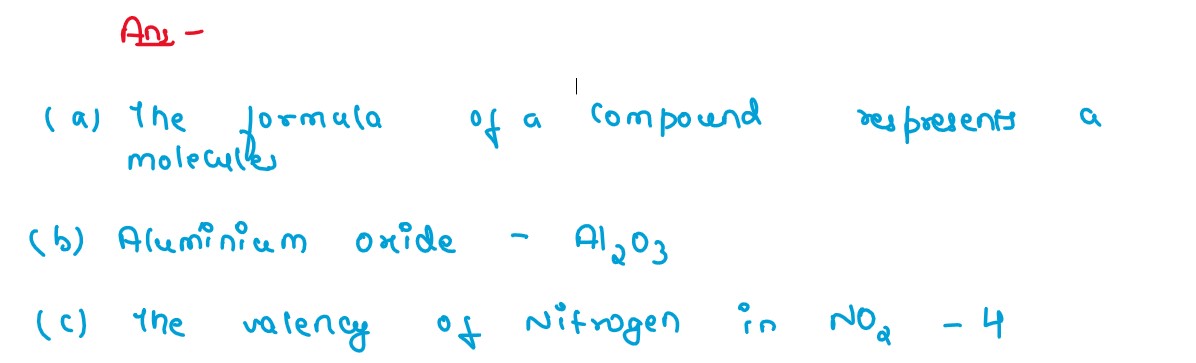 Ans -
(a) The formula of a compound respresents a
molecules
(b) Aluminium oxide - Al₂O₃
(c) The valency of Nitrogen in NO₂ - 4